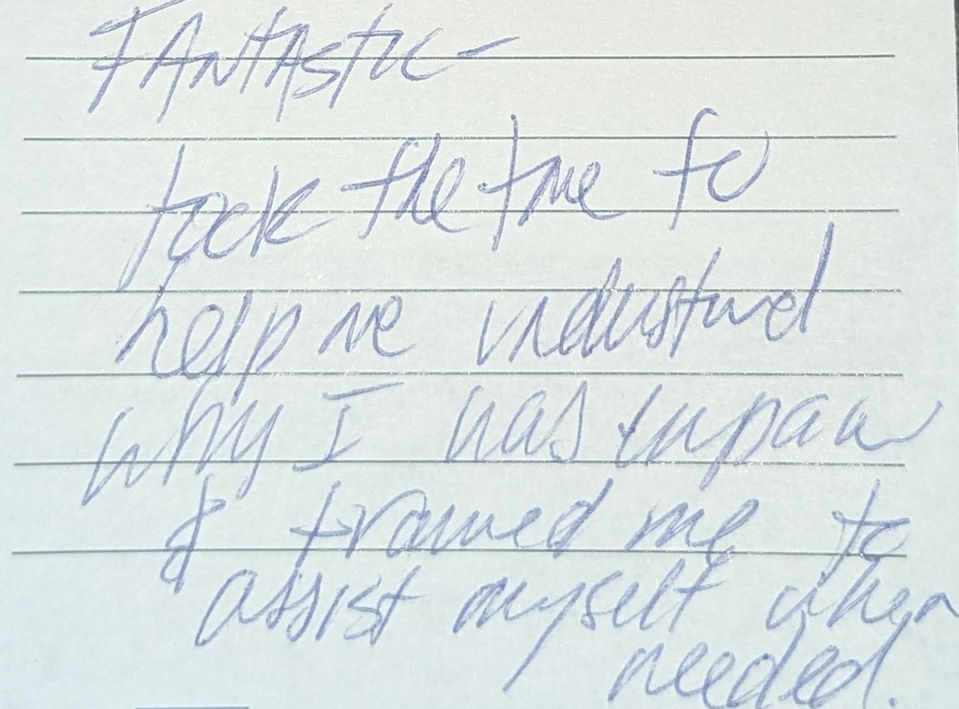 FANTASTIC -
took the time to
help me understand
why I was in pain
& trained me to
assist myself when
needed.